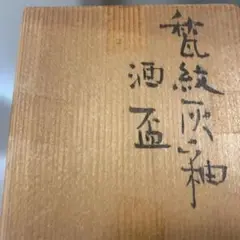 甃紋灰釉
酒盃